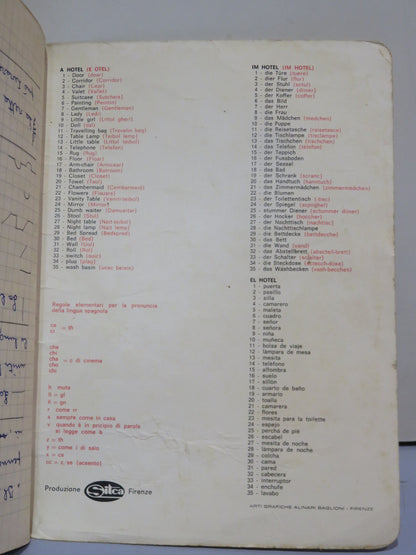 A HOTEL (E OTEL)
1 - Door (doar)
2 - Corridor (Corridor)
3 - Chair (Cear)
4 - Valet (Vallet)
5 - Suitcase
6 - Painting (Peintin)
7 - Gentleman (Gentlemen)
8 - Lady (Ledi)
9 - Little girl (Littol gherl)
10 - Doll (dol)
11 - Travelling bag (Trevelin beg)
12 - Table Lamp (Teibol lemp)
13 - Little table (Littol teibol)
14 - Telephone (Telefon)
15 - Rug (Rug)
16 - Floor (Floar)
17 - Arm-chair (Armcear)
18 - Bathroom (Batrum)
19 - Closet (Closet)
20 - Towel (Taol)
21 - Chambermaid
22 - Flowers (Flauers)
23 - Vanity Table (Venitteibol)
24 - Mirror (Mirror)
25 - Dumb waiter (Damuaiter)
26 - Stool (Stul)
27 - Night table (Nait-teibol)
28 - Night lamp (Nait lemp)
29 - Bed Spread (Bedspred)
30 - Bed (Bed)
31 - Wall (Uol)
32 - Roll (Rol)
33 - switch
34 - plug (plag)
35 - wash basin
IM HOTEL (IM HOTEL)
1 - die Türe (tuere)
2 - der Flur (flur)
3 - der Stuhl (sctul)
4 - der Diener (diner)
5 - der Koffer (coffer)
6 - das Bild
7 - der Herr
8 - die Frau
9 - das Mädchen (medchen)
10 - die Puppe
11 - die Reisetasche (raisetasce)
12 - die Tischlampe (tisclampe)
13 - das Tischchen (tischchen)
14 - das Telefon (telefon)
15 - der Teppich
16 - der Fussboden
17 - der Sessel
18 - das Bad
19 - der Schrank (scranc)
20 - das Handtuch (hanntuch)
21 - das Zimmermädchen (zimmermedchen)
22 - die Blumen
23 - der Toilettentisch (tisc)
24 - der Spiegel (spighel)
25 - stummer Diener (sctummer diner)
26 - der Hocker (hocher)
27 - der Nachttisch (nacttisc)
28 - die Nachttischlampe
29 - die Bettdecke (bettdeche)
30 - das Bett
31 - die Wand (vand)
32 - das Abstellbrett
33 - der Schalter (scialter)
34 - die Steckdose
35 - das Waschbecken (vash-becchen)
EL HOTEL
1 - puerta
2 - pasillo
3 - silla
4 - camarero
5 - maleta
6 - cuadro
7 - señor
8 - señora
9 - niña
10 - muñeca
11 - bolsa de viaje
12 - lámpara de mesa
13 - mesita
14 - teléfono
15 - alfombra
16 - suelo
17 - sillón
18 - cuarto de baño
19 - armario
20 - toalla
21 - camarera
22 - flores
23 - mesita para la toilette
24 - espejo
25 - percha de pié
26 - escabel
27 - mesita de noche
28 - lámpara de noche
29 - colcha
30 - cama
31 - pared
32 - cabecera
33 - interruptor
34 - enchufe
35 - lavabo
Regole elementari per la pronuncia
della lingua spagnola
ce
ci = th
che
chi
cha = c di cinema
cho
chi
h muta
ll = gl
ñ = gn
r come rr
s sempre come in casa
v quando è in principio di parola
si legge come b
z = th
y = come i di saio
x = cs
cc = c/se (accento)
Produzione Sitca Firenze
ARTI GRAFICHE ALINARI BAGLIONI - FIRENZE